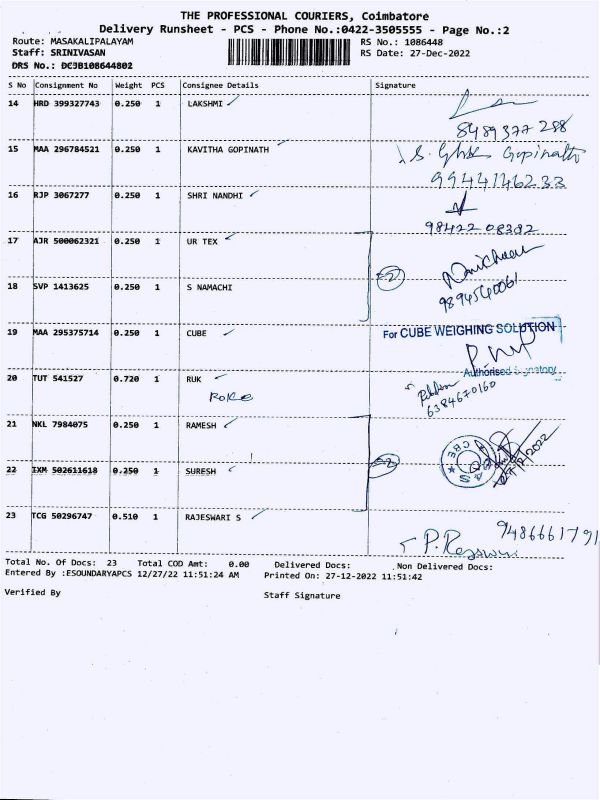 THE PROFESSIONAL COURIERS, Coimbatore
Delivery Runsheet - PCS - Phone No.:0422-3505555 - Page No.:2
Route: MASAKALIPALAYAM RS No.: 1086448
Staff: SRINIVASAN RS Date: 27-Dec-2022
DRS No.: DCJB108644802
S No Consignment No Weight PCS Consignee Details Signature
14 HRD 399327743 0.250 1 LAKSHMI
8489377288
15 MAA 296784521 0.250 1 KAVITHA GOPINATH
Gopinath
9944146233
16 RJP 3067277 0.250 1 SHRI NANDHI
98422 08382
17 AJR 500062321 0.250 1 UR TEX
2
18 SVP 1413625 0.250 1 S NAMACHI
9894540061
19 MAA 295375714 0.250 1 CUBE
For CUBE WEIGHING SOLUTION
Authorised Signatory
20 TUT 541527 0.720 1 RUK
6384670160
21 NKL 7984075 0.250 1 RAMESH
22 IXM 502611618 0.250 1 SURESH
2
23 TCG 50296747 0.510 1 RAJESWARI S
9486661791
Total No. Of Docs: 23 Total COD Amt: 0.00 Delivered Docs: Non Delivered Docs:
Entered By :ESOUNDARYAPCS 12/27/22 11:51:24 AM Printed On: 27-12-2022 11:51:42
Verified By Staff Signature